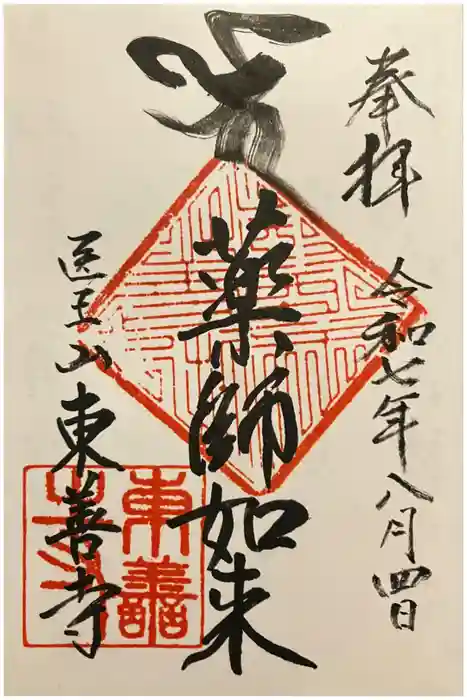 奉拝
令和七年八月四日
薬師如来
医王山
東善寺
東善